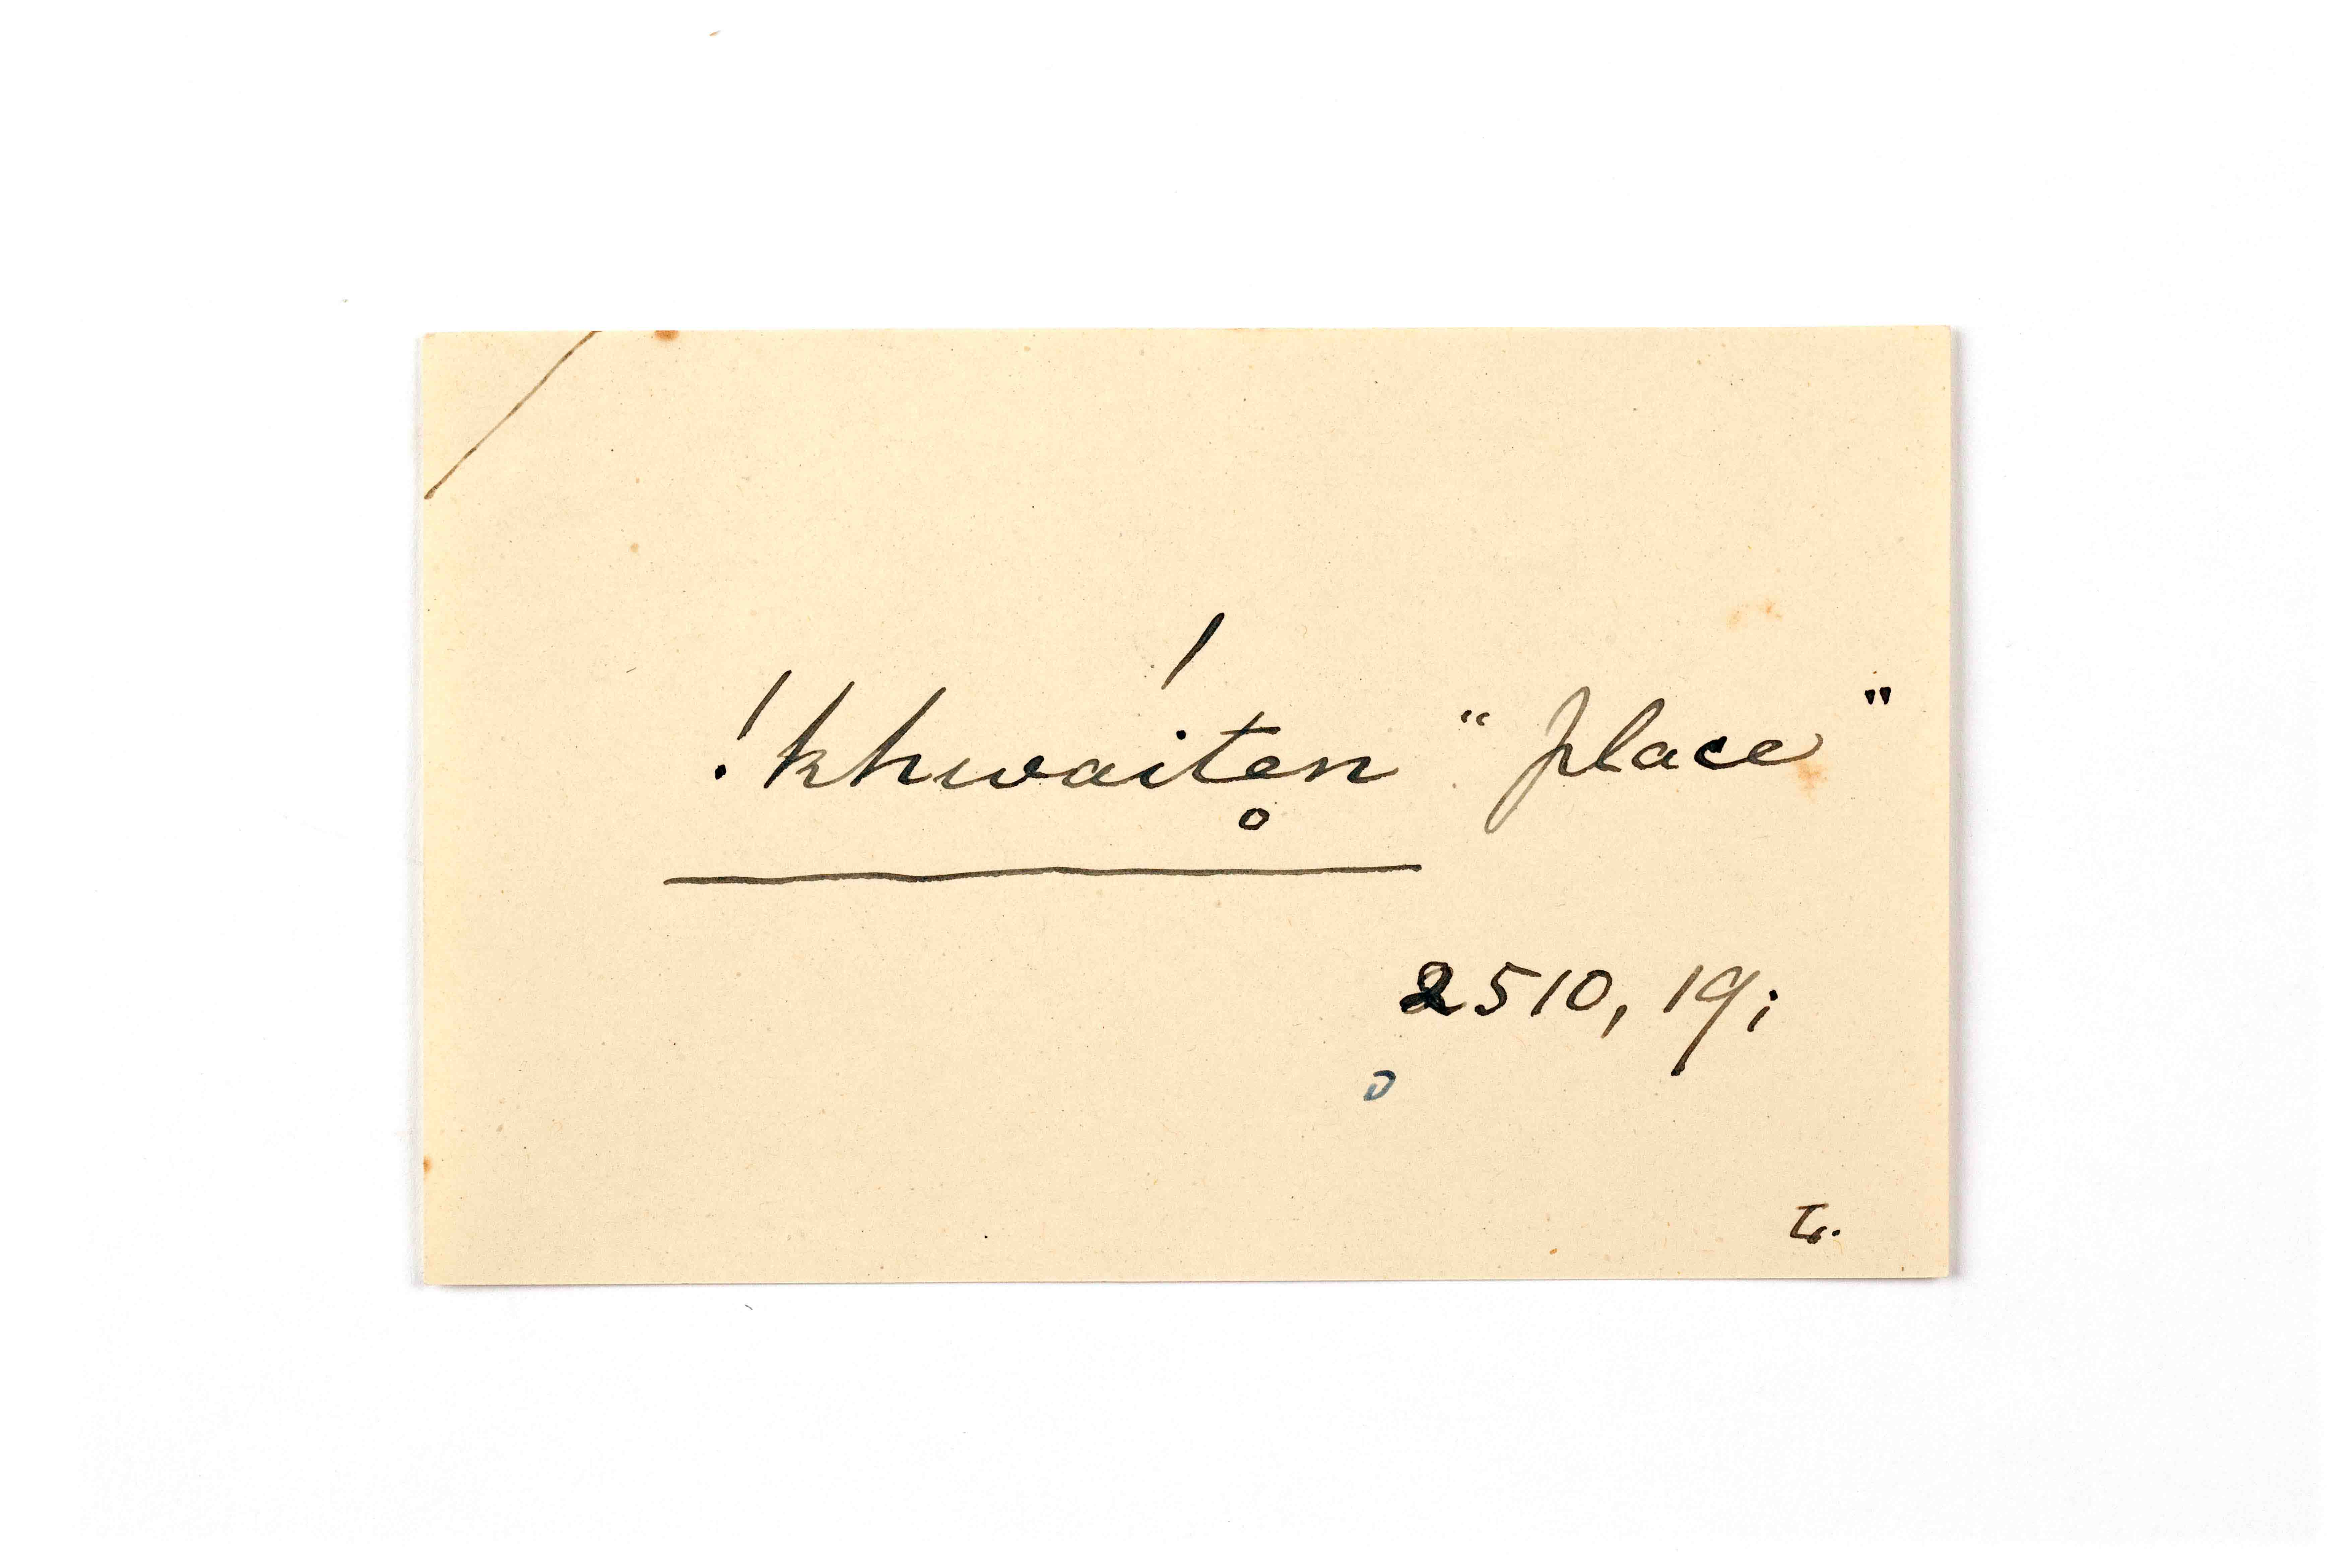 !khwáite̥n "place"
2510, 19;
L.